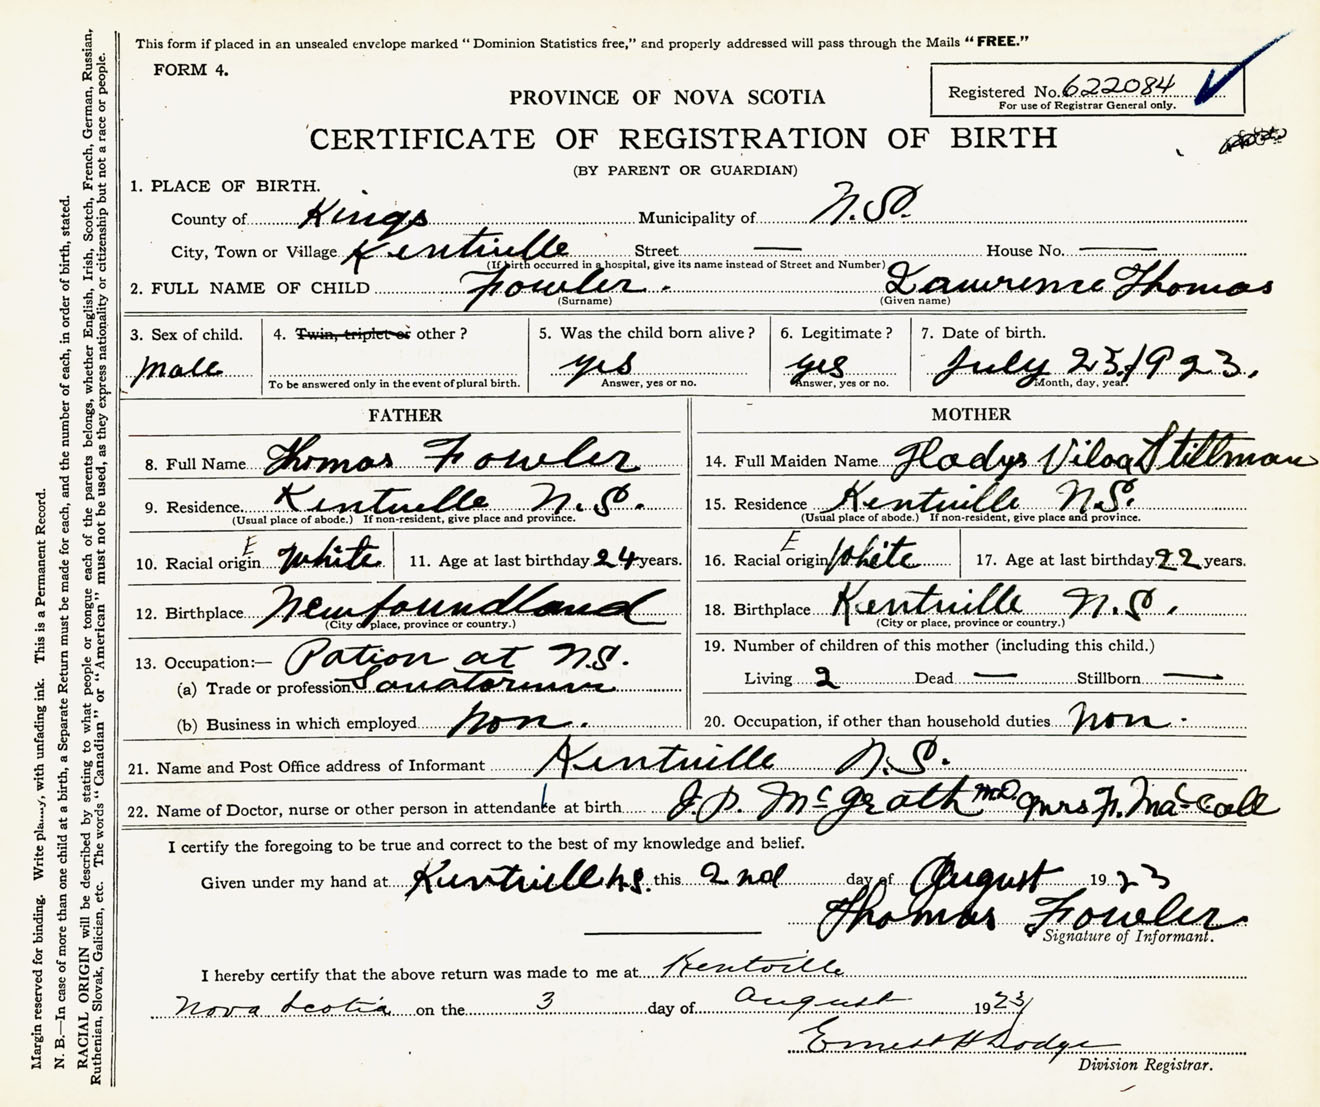 This form if placed in an unsealed envelope marked “Dominion Statistics free,” and properly addressed will pass through the Mails “FREE.”
FORM 4.
Registered No. 622084
For use of Registrar General only.
PROVINCE OF NOVA SCOTIA
CERTIFICATE OF REGISTRATION OF BIRTH
(BY PARENT OR GUARDIAN)
1. PLACE OF BIRTH.
County of Kings Municipality of N.S.
City, Town or Village Kentville Street — House No. —
(If birth occurred in a hospital, give its name instead of Street and Number)
2. FULL NAME OF CHILD Fowler. Lawrence Thomas
(Surname) (Given name)
3. Sex of child. 4. Twin, triplet or other? 5. Was the child born alive? 6. Legitimate? 7. Date of birth.
Male yes yes July 23, 1923.
To be answered only in the event of plural birth. Answer, yes or no. Answer, yes or no. Month, day, year.
FATHER MOTHER
8. Full Name Thomas Fowler 14. Full Maiden Name Gladys Viloa Stillman
9. Residence Kentville N.S. 15. Residence Kentville N.S.
(Usual place of abode.) If non-resident, give place and province. (Usual place of abode.) If non-resident, give place and province.
E E
10. Racial origin White 11. Age at last birthday 24 years. 16. Racial origin White 17. Age at last birthday 22 years.
12. Birthplace Newfoundland 18. Birthplace Kentville N.S.
(City or place, province or country.) (City or place, province or country.)
13. Occupation:— Pation at N.S. 19. Number of children of this mother (including this child.)
(a) Trade or profession Sanatorium Living 2 Dead — Stillborn —
(b) Business in which employed non. 20. Occupation, if other than household duties non.
21. Name and Post Office address of Informant Kentville N.S.
22. Name of Doctor, nurse or other person in attendance at birth J.P. McGrath M.D. Mrs F. MacCall
I certify the foregoing to be true and correct to the best of my knowledge and belief.
Given under my hand at Kentville N.S. this 2nd day of August 1923
Thomas Fowler
Signature of Informant.
I hereby certify that the above return was made to me at Kentville
Nova Scotia on the 3 day of August 1923
Ernest H Dodge
Division Registrar.
Margin reserved for binding. Write, with unfading ink. This is a Permanent Record.
N. B.—In case of more than one child at a birth, a Separate Return must be made for each, and the number of each, in order of birth, stated.
RACIAL ORIGIN will be described by stating to what people or tongue each of the parents belongs, whether English, Irish, Scotch, French, German, Russian,
Ruthenian, Slovak, Galician, etc. The words “Canadian” or “American” must not be used, as they express nationality or citizenship but not a race or people.